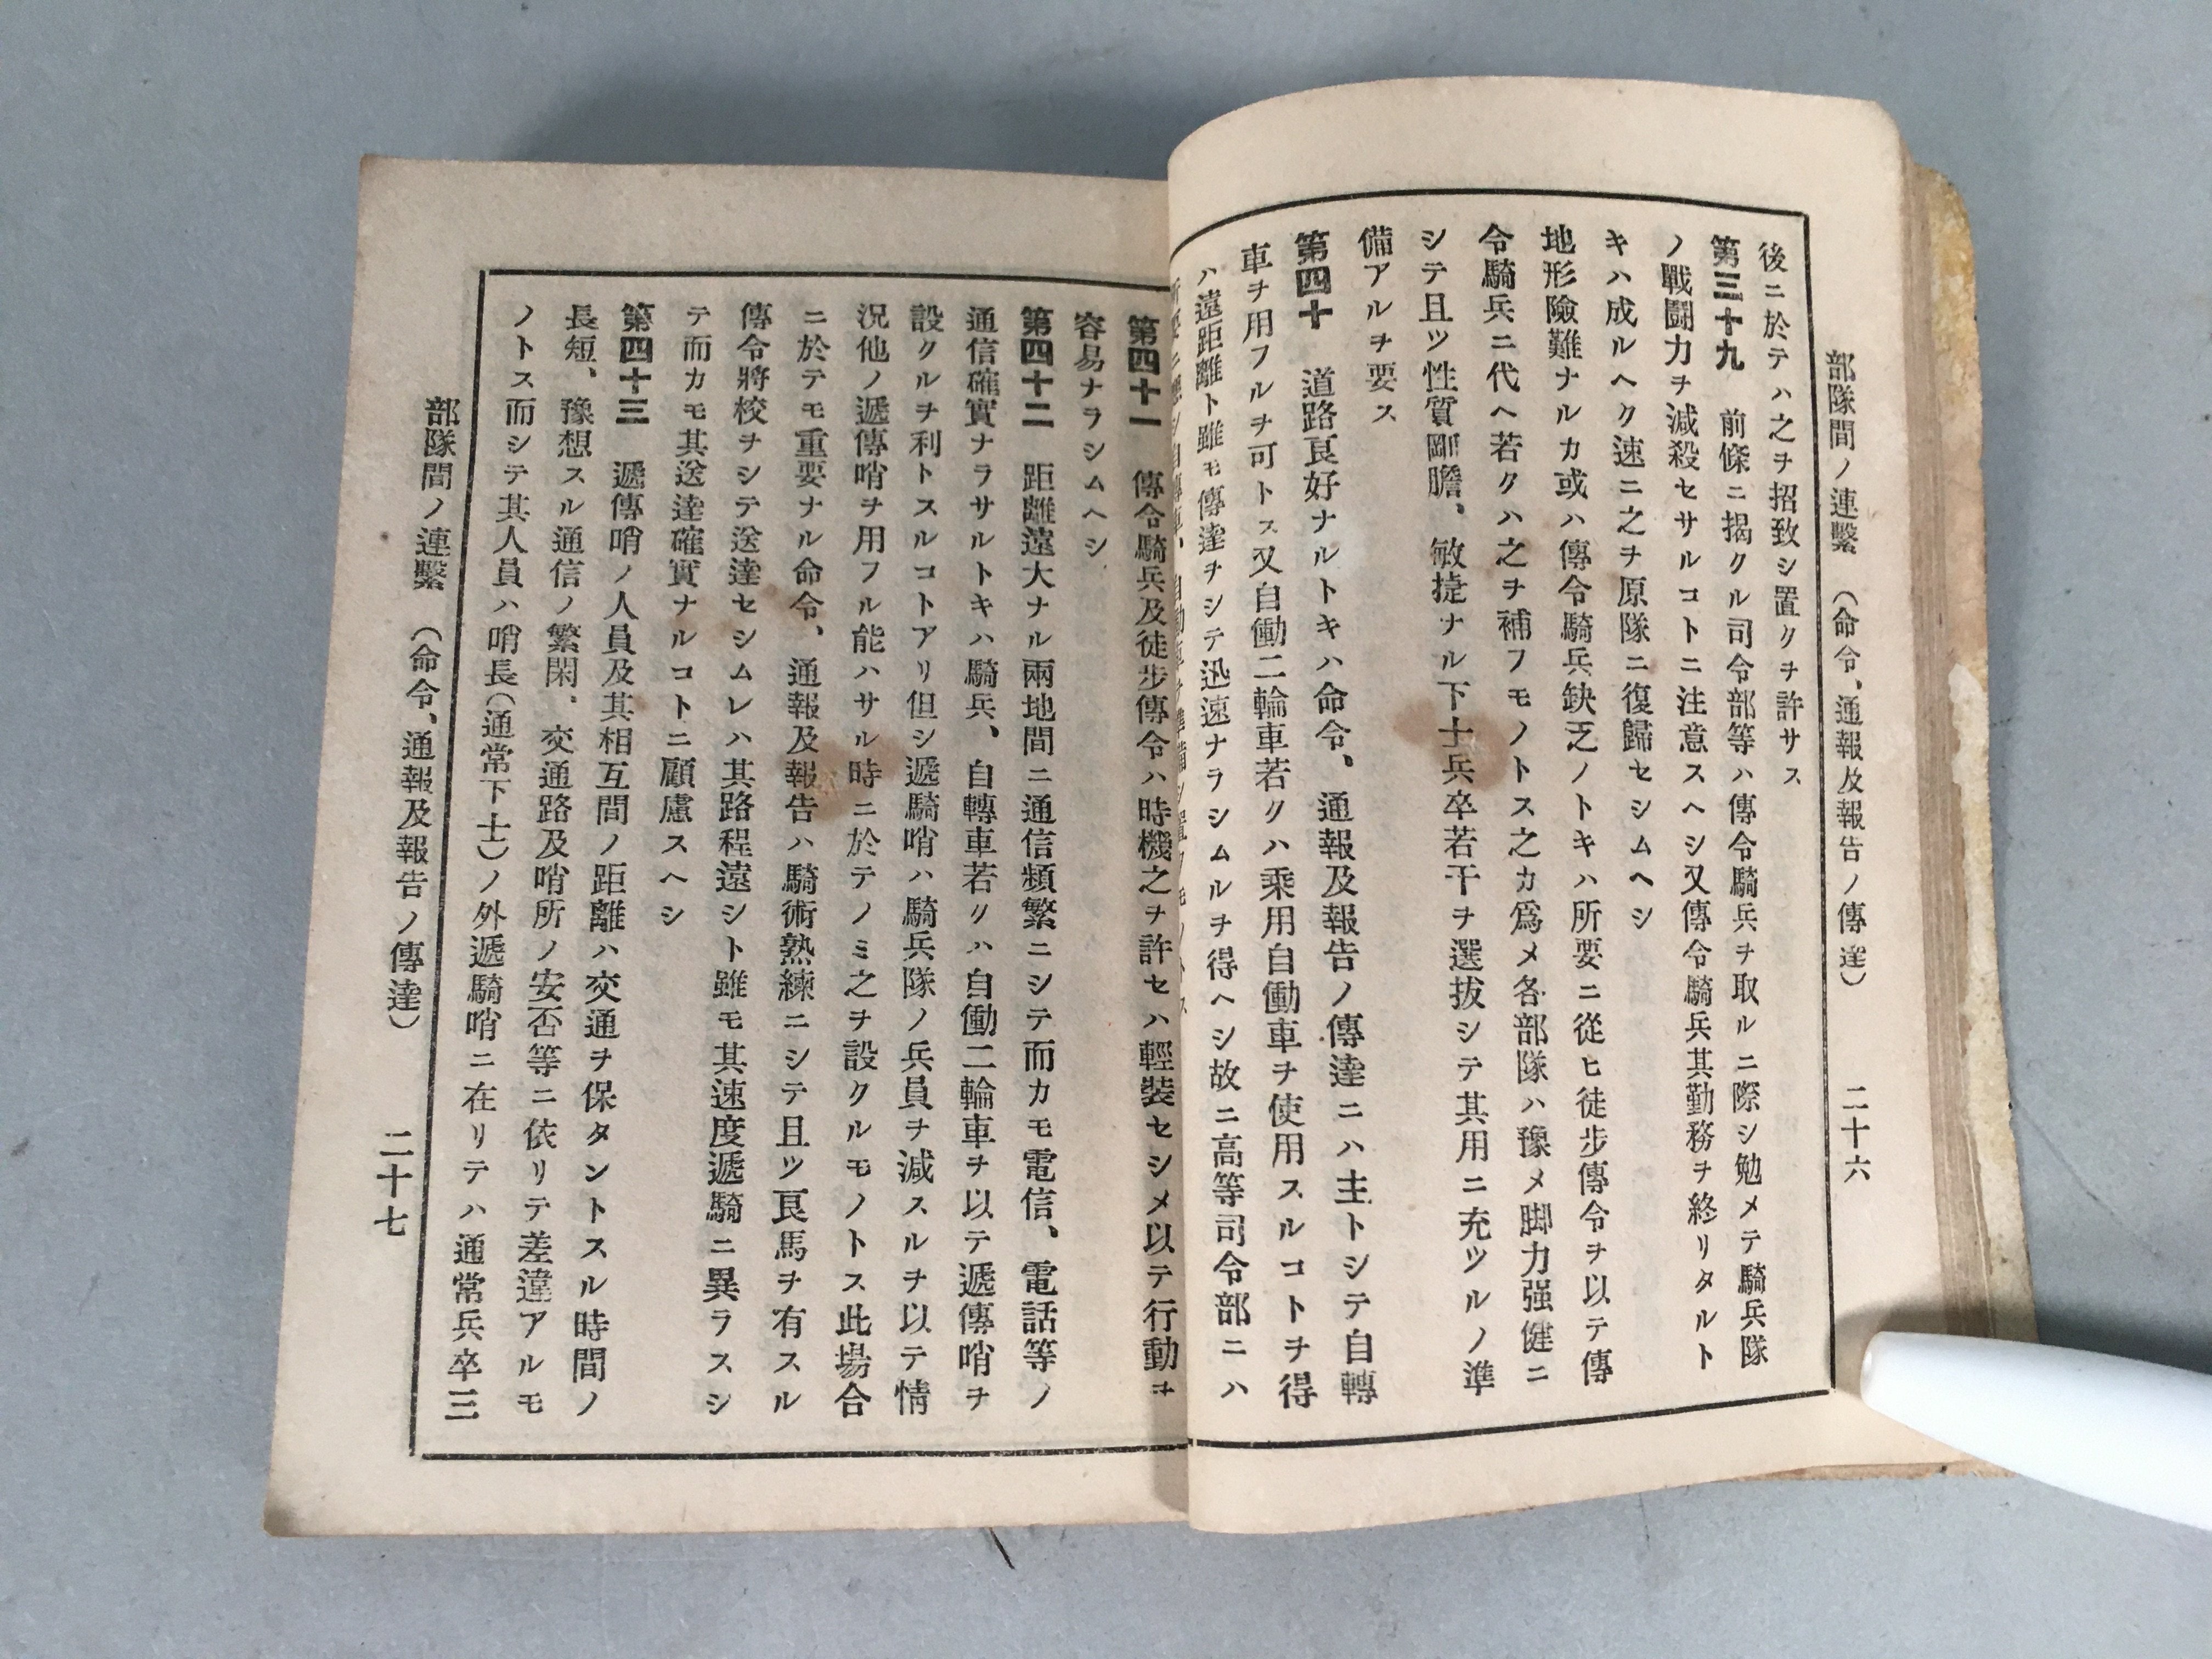 部隊間ノ連繫　（命令、通報及報告ノ傳達）　二十六
後ニ於テハ之ヲ招致シ置クヲ許サス
第三十九　前條ニ揭クル司令部等ハ傳令騎兵ヲ取ルニ際シ勉メテ騎兵隊
ノ戰鬪力ヲ減殺セサルコトニ注意スヘシ又傳令騎兵其勤務ヲ終リタルト
キハ成ルヘク速ニ之ヲ原隊ニ復歸セシムヘシ
地形險難ナルカ或ハ傳令騎兵缺乏ノトキハ所要ニ從ヒ徒步傳令ヲ以テ傳
令騎兵ニ代ヘ若クハ之ヲ補フモノトス之カ爲メ各部隊ハ豫メ脚力强健ニ
シテ且ツ性質剛膽、敏捷ナル下士兵卒若干ヲ選拔シテ其用ニ充ツルノ準
備アルヲ要ス
第四十　道路良好ナルトキハ命令、通報及報告ノ傳達ニハ主トシテ自轉
車ヲ用フルヲ可トス又自働二輪車若クハ乘用自働車ヲ使用スルコトヲ得
ハ遠距離ト雖モ傳達ヲシテ迅速ナラシムルヲ得ヘシ故ニ高等司令部ニハ
第四十一　傳令騎兵及徒步傳令ハ時機之ヲ許セハ輕裝セシメ以テ行動ヲ
容易ナラシムヘシ
第四十二　距離遠大ナル兩地間ニ通信頻繁ニシテ而カモ電信、電話等ノ
通信確實ナラサルトキハ騎兵、自轉車若クハ自働二輪車ヲ以テ遞傳哨ヲ
設クルヲ利トスルコトアリ但シ遞騎哨ハ騎兵隊ノ兵員ヲ減スルヲ以テ情
況他ノ遞傳哨ヲ用フル能ハサル時ニ於テノミ之ヲ設クルモノトス此場合
ニ於テモ重要ナル命令、通報及報告ハ騎術熟練ニシテ且ツ良馬ヲ有スル
傳令將校ヲシテ送達セシムレハ其路程遠シト雖モ其速度遞騎ニ異ラスシ
テ而カモ其送達確實ナルコトニ顧慮スヘシ
第四十三　遞傳哨ノ人員及其相互間ノ距離ハ交通ヲ保タントスル時間ノ
長短、豫想スル通信ノ繁閑、交通路及哨所ノ安否等ニ依リテ差違アルモ
ノトス而シテ其人員ハ哨長（通常下士）ノ外遞騎哨ニ在リテハ通常兵卒三
部隊間ノ連繫　（命令、通報及報告ノ傳達）　二十七